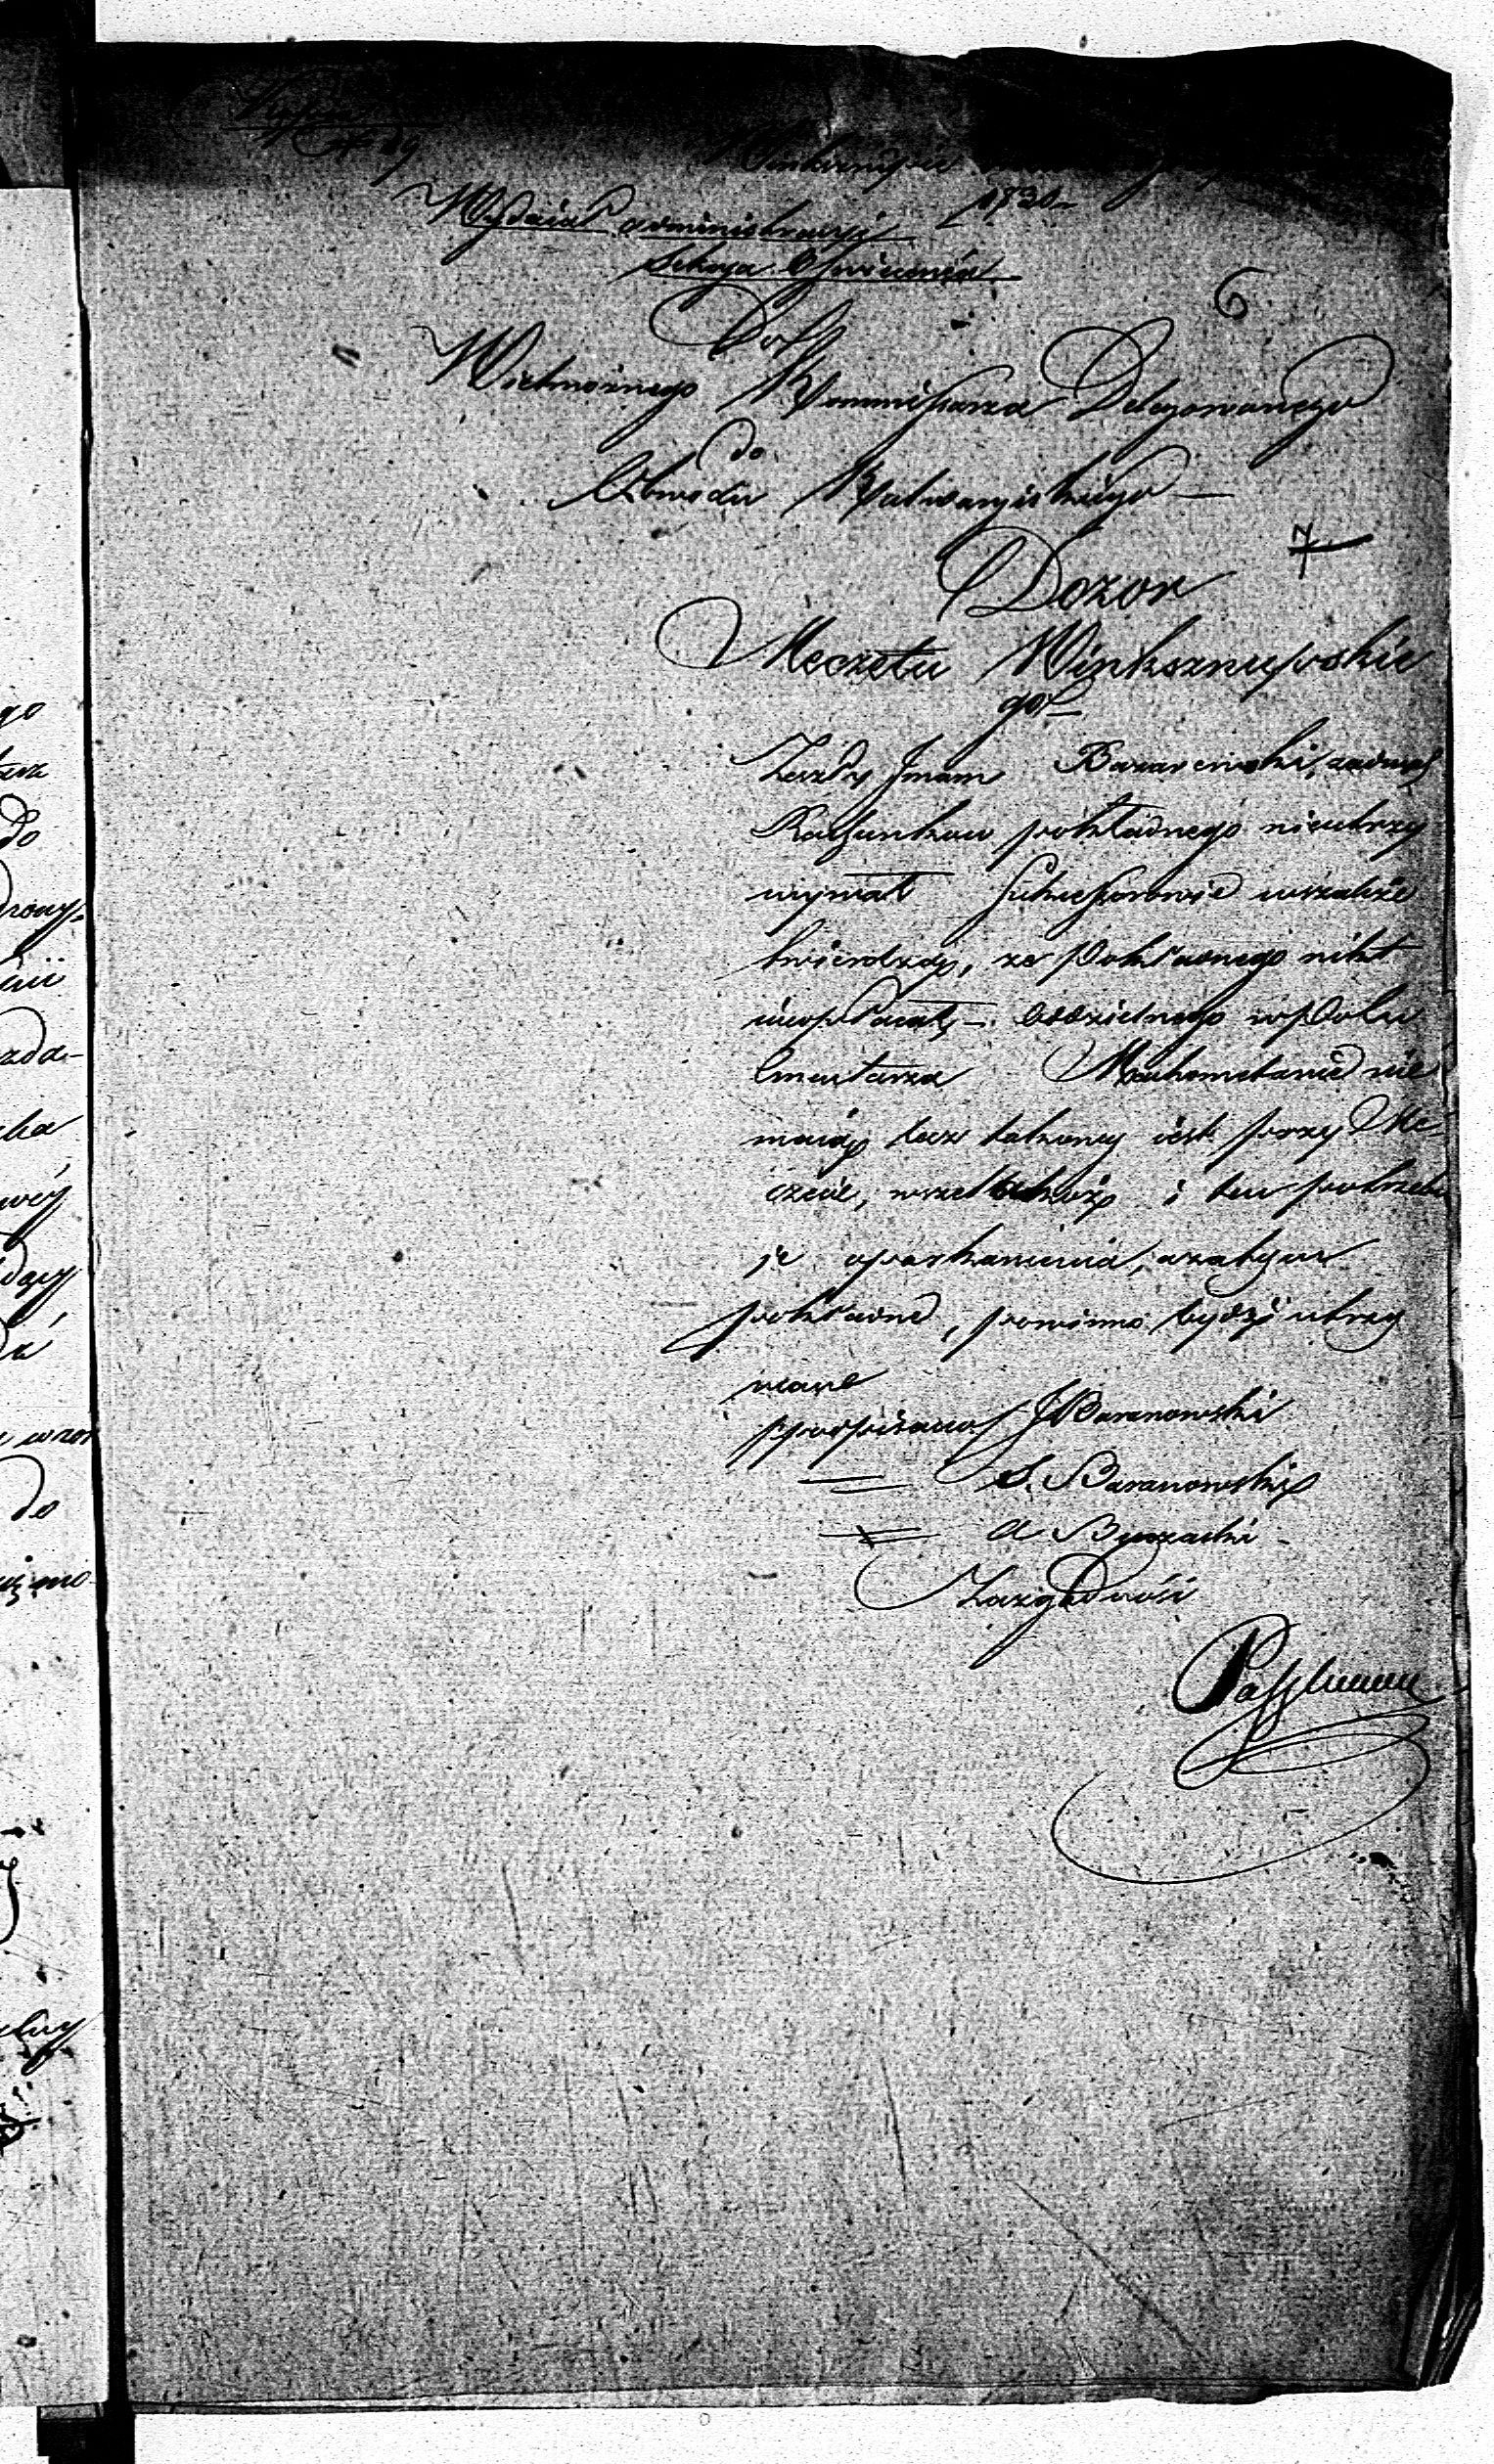 1830
Wydział administracyi
Sekcya Oświecenia
6
Do
Wielmożnego Kommissarza Delegowanego
do
Obwodu Kalwaryiskiego
7
Dozor
Meczetu Winksznupskie
go
Zeszły Jmam żadnych
Rachunkow pokładnego nieutrzy
mywał Sukcessorowie wszakże
twierdzą, że Pokładnego nikt
nieopłacał, Oddzielnego w Polu
Cmentarza Machometanie nie
maią lecz takowy iest przy Me-
czecie, i ten potrzebu
je oparkanienia, a zatym
pokładne, powinno bydź utrzy
mane
podpisano J Baranowski
S. Baranowski
A Buczacki
Za zgodność